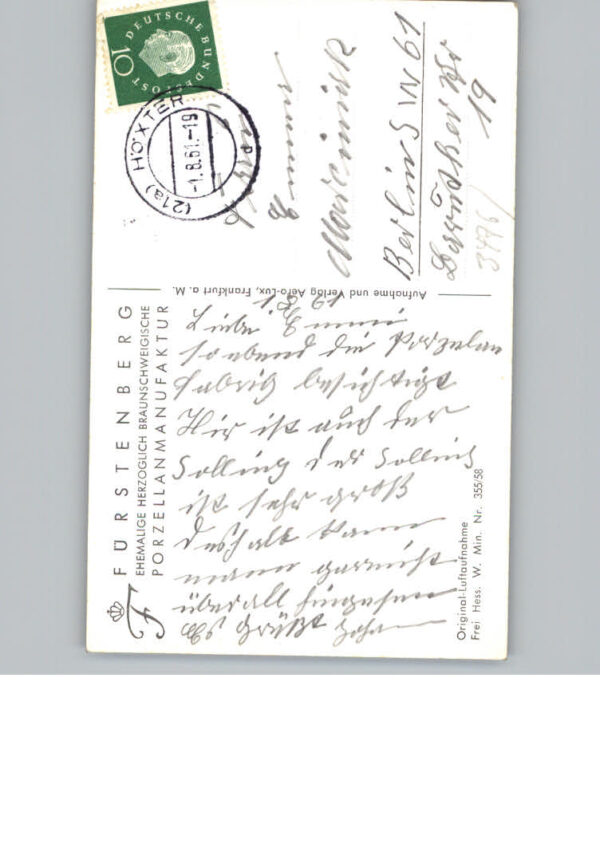 DEUTSCHE BUNDESPOST
10
(21a) HÖXTER
-1.8.61.-19
d
Emmi
Berlin SW 61
19
Aufnahme und Verlag Aero-Lux, Frankfurt a. M.
FÜRSTENBERG
EHEMALIGE HERZOGLICH BRAUNSCHWEIGISCHE
PORZELLANMANUFAKTUR
Liebe Emmi
soebend die Porzelan
fabrik besichtigt
Hir ist auch der
Solling der Solling
ist sehr groß
deshalb kann
mann garnicht
überall hingehen
Es grüßt
Original-Luftaufnahme
Frei Hess. W. Min. Nr. 355/58